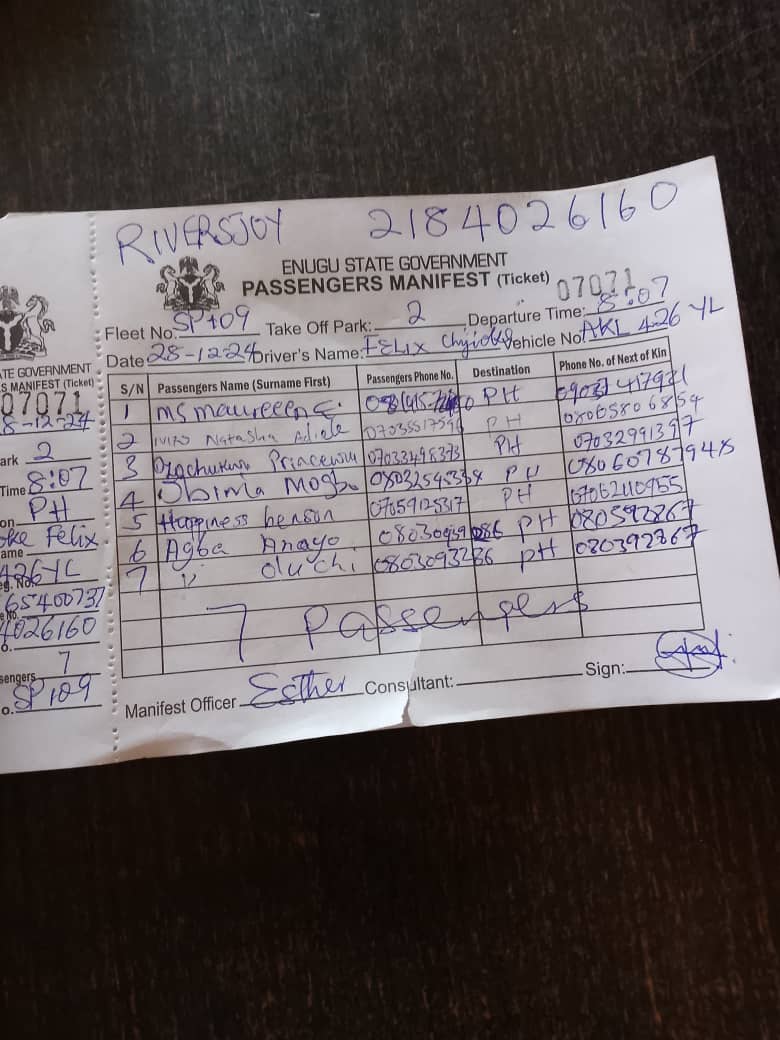 RIVERSJOY 2184026160
ENUGU STATE GOVERNMENT
PASSENGERS MANIFEST (Ticket) 07071
Fleet No. SP109 Take Off Park: 2 Departure Time: 8:07
Date 28-12-24 Driver's Name: FELIX Vehicle No. AKL 426 YL
S/N Passengers Name (Surname First) Passengers Phone No. Destination Phone No. of Next of Kin
1 MS maureeen E. PH
2 Natasha Adiele PH 08065806854
3 Princewill 07033498373 PH 07032991397
4 Obinna Mogbo PH 08060787948
5 Happiness benson 07059125317 PH 07062110955
6 Agba Anayo PH
7 " oluchi 0803093236 PH
7 Passengers
Manifest Officer Esther Consultant: Sign:
TE GOVERNMENT
S MANIFEST (Ticket)
07071
8-12-24
ark 2
Time 8:07
on PH
oke Felix
ame
426 YL
eg. No.
65400737
e No.
4026160
o.
7
sengers
o. SP109